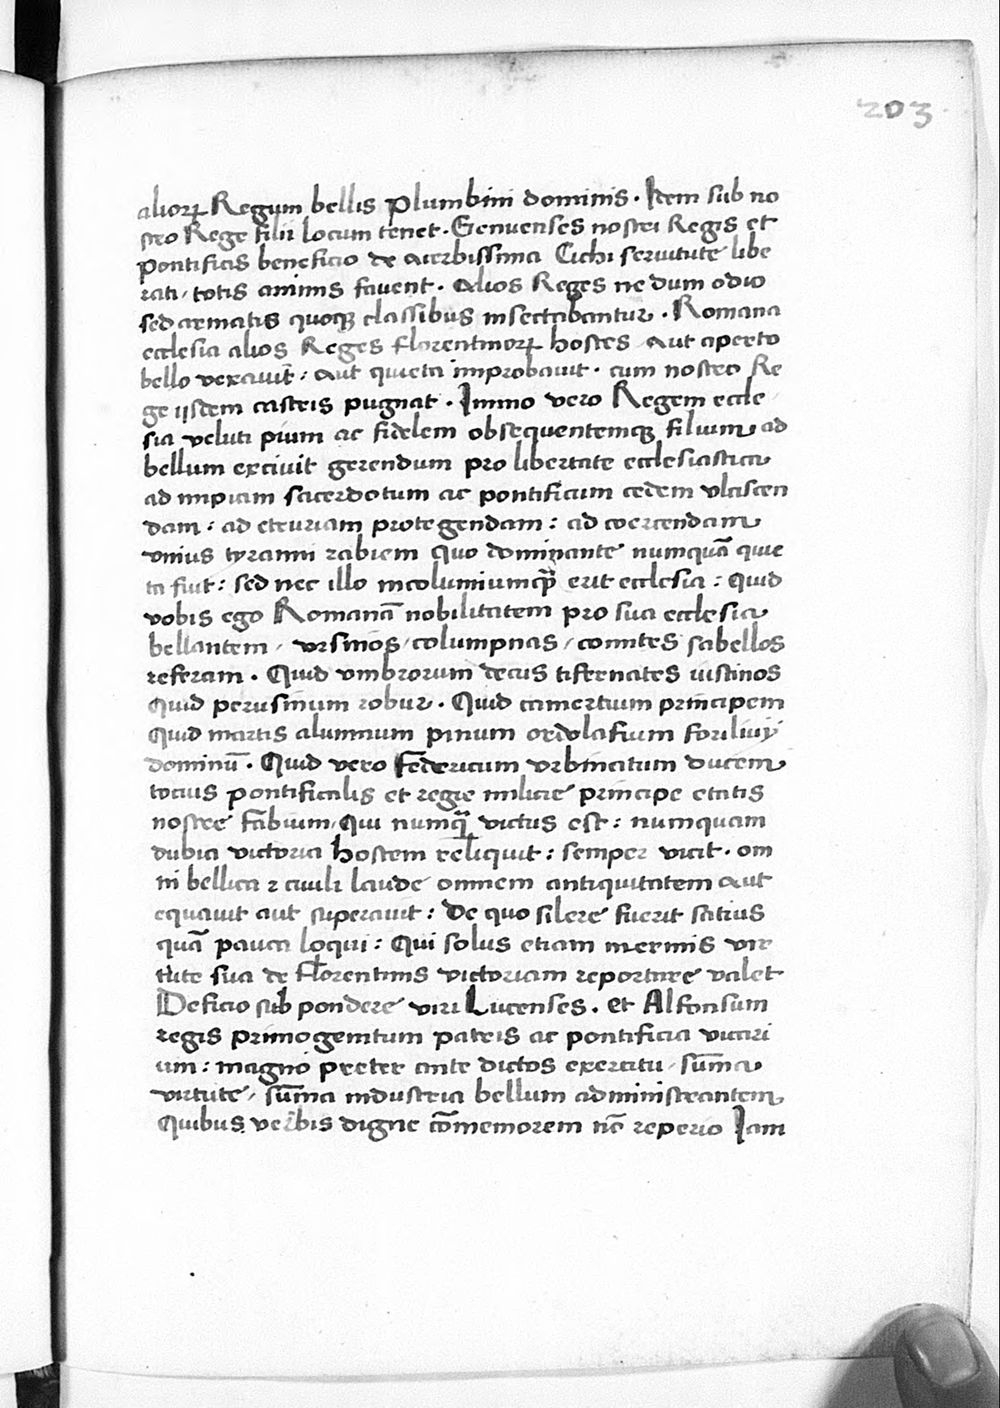 203
alioꝝ Regum bellis plumbini dominis. Idem sub no
stro Rege filii locum tenet. Genuenses nostri Regis et
pontificis beneficio de acerbissima Cichi seruitute libe
rati, totis animis fauent. Alios Reges ne dum odio
sed armatis quoqꝫ classibus insectabantur. Romana
ecclesia alios Reges florentinoꝝ hostes Aut aperto
bello vexauit: Aut quieta improbauit. cum nostro Re
ge iisdem castris pugnat. Immo vero Regem eccle
sia veluti pium ac fidelem obsequentemqꝫ filium ad
bellum exciuit gerendum pro libertate ecclesiastica
ad impiam sacerdotum ac pontificum cedem vlciscen
dam: ad etruriam protegendam: ad coercendam
vnius tyranni rabiem quo dominante numquā quie
ta fuit: sed nec illo incolumi umqꝫ̄ erit ecclesia: Quid
vobis ego Romanā nobilitatem pro sua ecclesia
bellantem, vrsinos, columpnas, comites sabellos
referam. Quid vmbrorum decus tifernates iustinos
Quid perusinum robur. Quid camertium principem
Quid martis alumnum pinum ordolafium foriliuij
dominū. Quid vero federicum vrbinatum ducem
tocius pontificalis et regie milicie principe etatis
nostre fabium, Qui numqꝫ̄ victus est: numquam
dubia victoria hostem reliquit: semper vicit. om
ni bellica ⁊ ciuili laude omnem antiquitatem aut
equauit aut superauit: De quo silere fuerit satius
quā pauca loqui: Qui solus etiam inermis vir
tute sua de florentinis victoriam reportare valet
Deficio sub pondere viri Lucenses. et Alfonsum
regis primogenitum patris ac pontificia vicari
um: magno preter ante dictos exercitu, sūma
virtute, sūma industria bellum administrantem
Quibus verbis digne cōmemorem nō reperio Iam